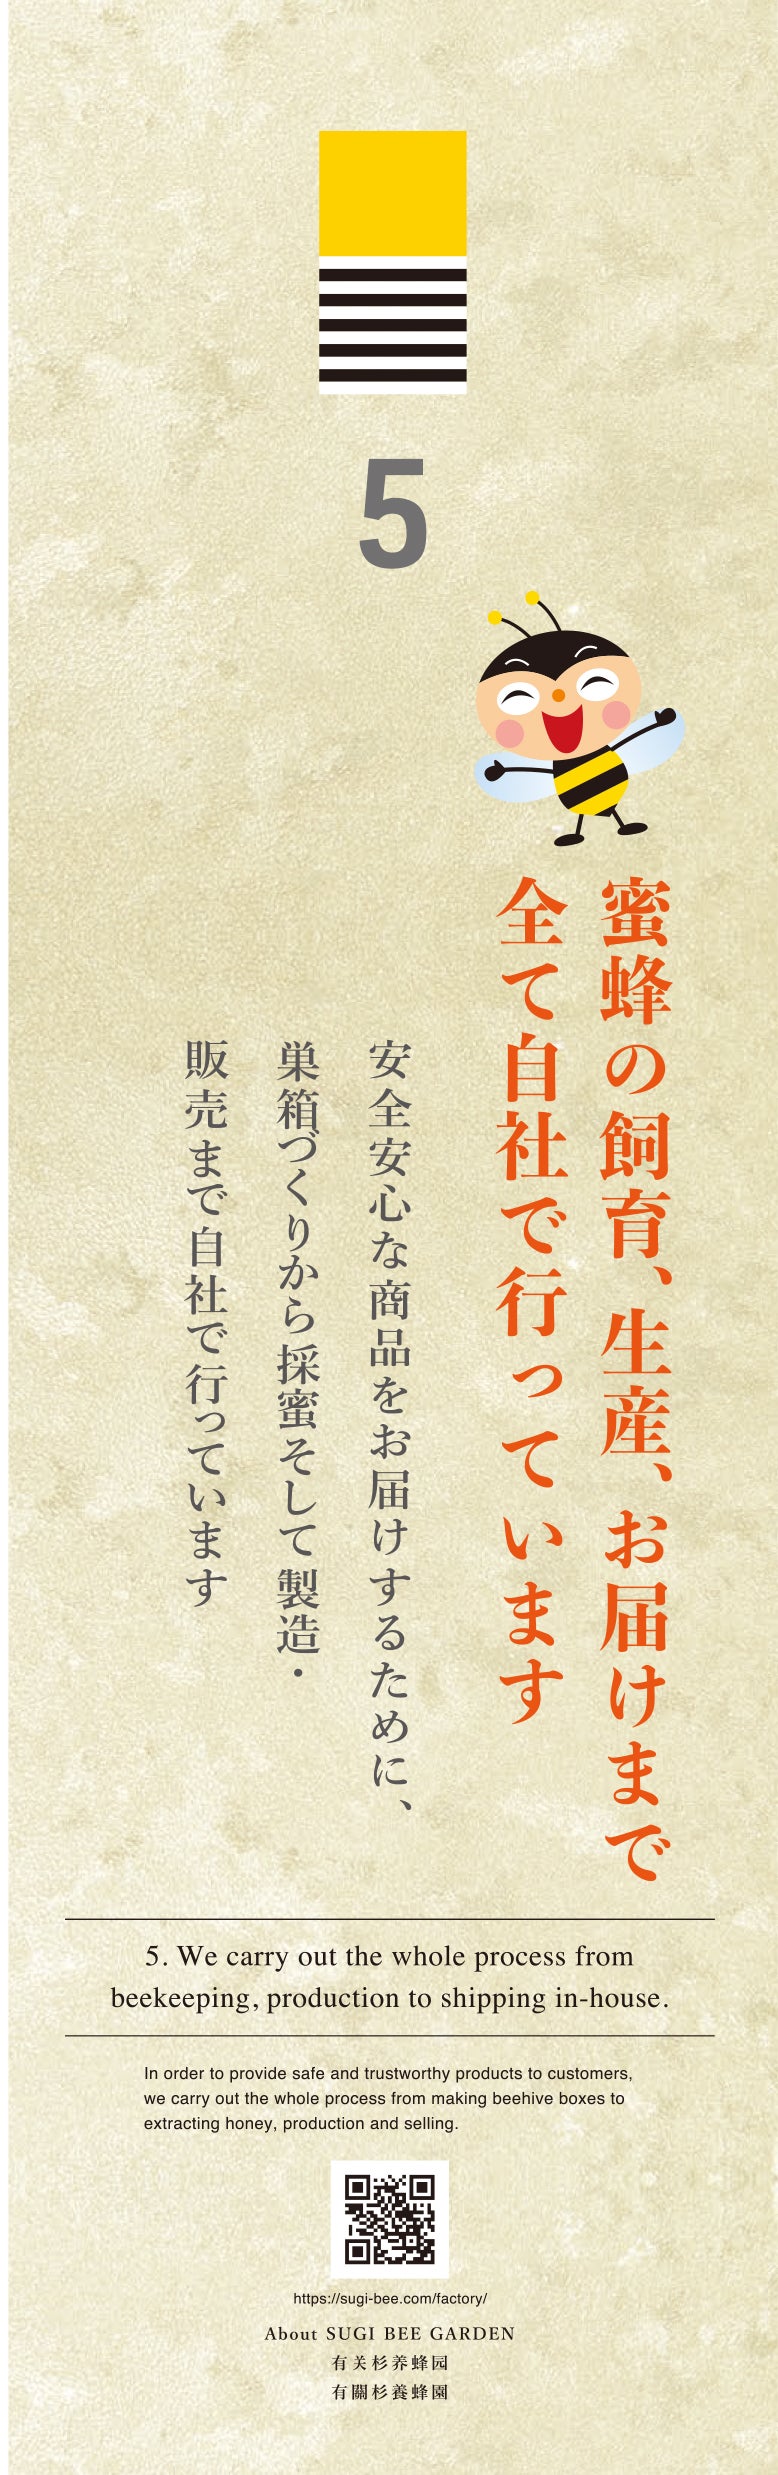 5
蜜蜂の飼育、生産、お届けまで
全て自社で行っています
安全安心な商品をお届けするために、
巣箱づくりから採蜜そして製造・
販売まで自社で行っています
5. We carry out the whole process from
beekeeping, production to shipping in-house.
In order to provide safe and trustworthy products to customers,
we carry out the whole process from making beehive boxes to
extracting honey, production and selling.
https://sugi-bee.com/factory/
About SUGI BEE GARDEN
有关杉养蜂园
有關杉養蜂園